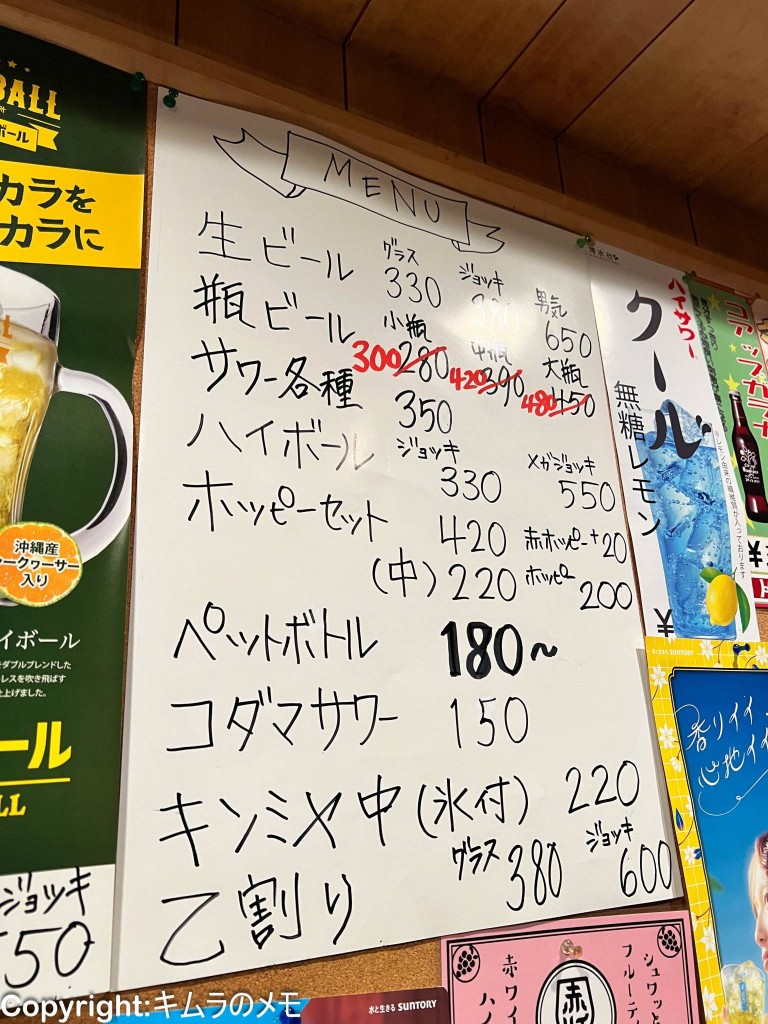 BALL
ボール
カラを
カラに
沖縄産
ークヮーサー
入り
イボール
をダブルブレンドした
レスを吹き飛ばす
上げました。
ール
LL
ジョッキ
550
MENU
生ビール グラス 330 ジョッキ 380 男気 650
瓶ビール 小瓶 300 280 中瓶 420 390 大瓶 480 450
サワー各種 350
ハイボール ジョッキ 330 メガジョッキ 550
ホッピーセット 420 赤ホッピー+20
(中) 220 ホッピー 200
ペットボトル 180~
コダマサワー 150
キンミヤ中(氷付) 220
乙割り グラス 380 ジョッキ 600
博水社
ハイサワー
クール
無糖レモン
※レモン由来の繊維質が入っております
¥
コアップガラナ
¥
水と生きる SUNTORY
香りイイ
心地イイ
シュワッと
フルーテ
赤ワイ
ハイ
赤
水と生きる SUNTORY
Copyright:キムラのメモ